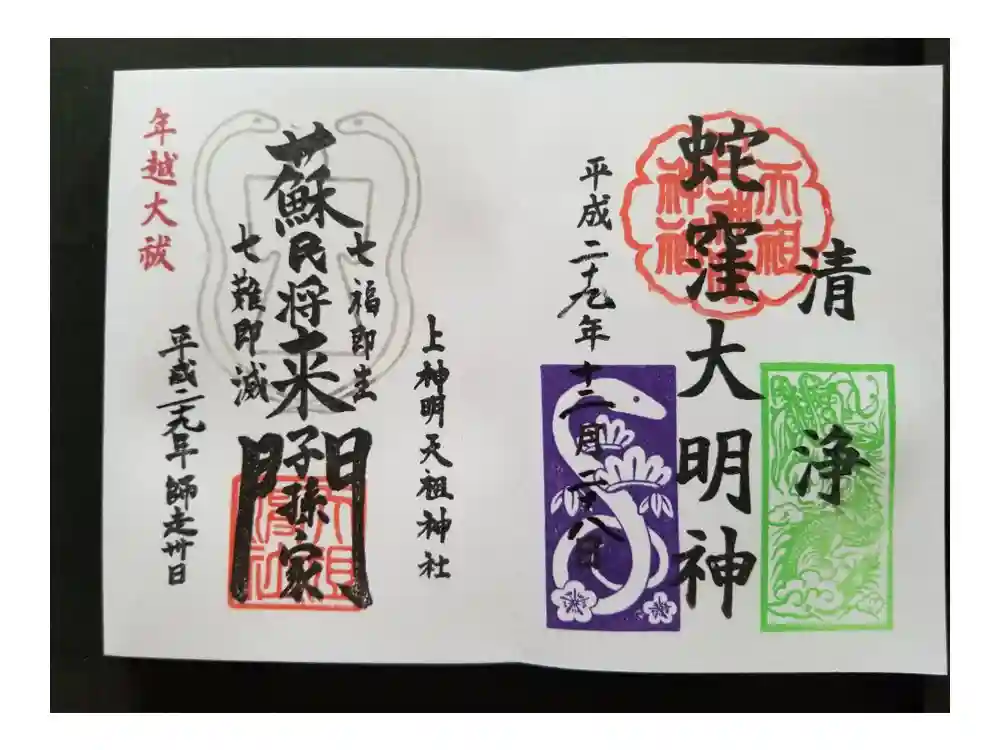 清浄
蛇窪大明神
天祖神社
平成二十九年十二月二十八日
上神明天祖神社
七福即生
蘇民将来子孫家門
七難即滅
平成二十九年師走卅日
年越大祓